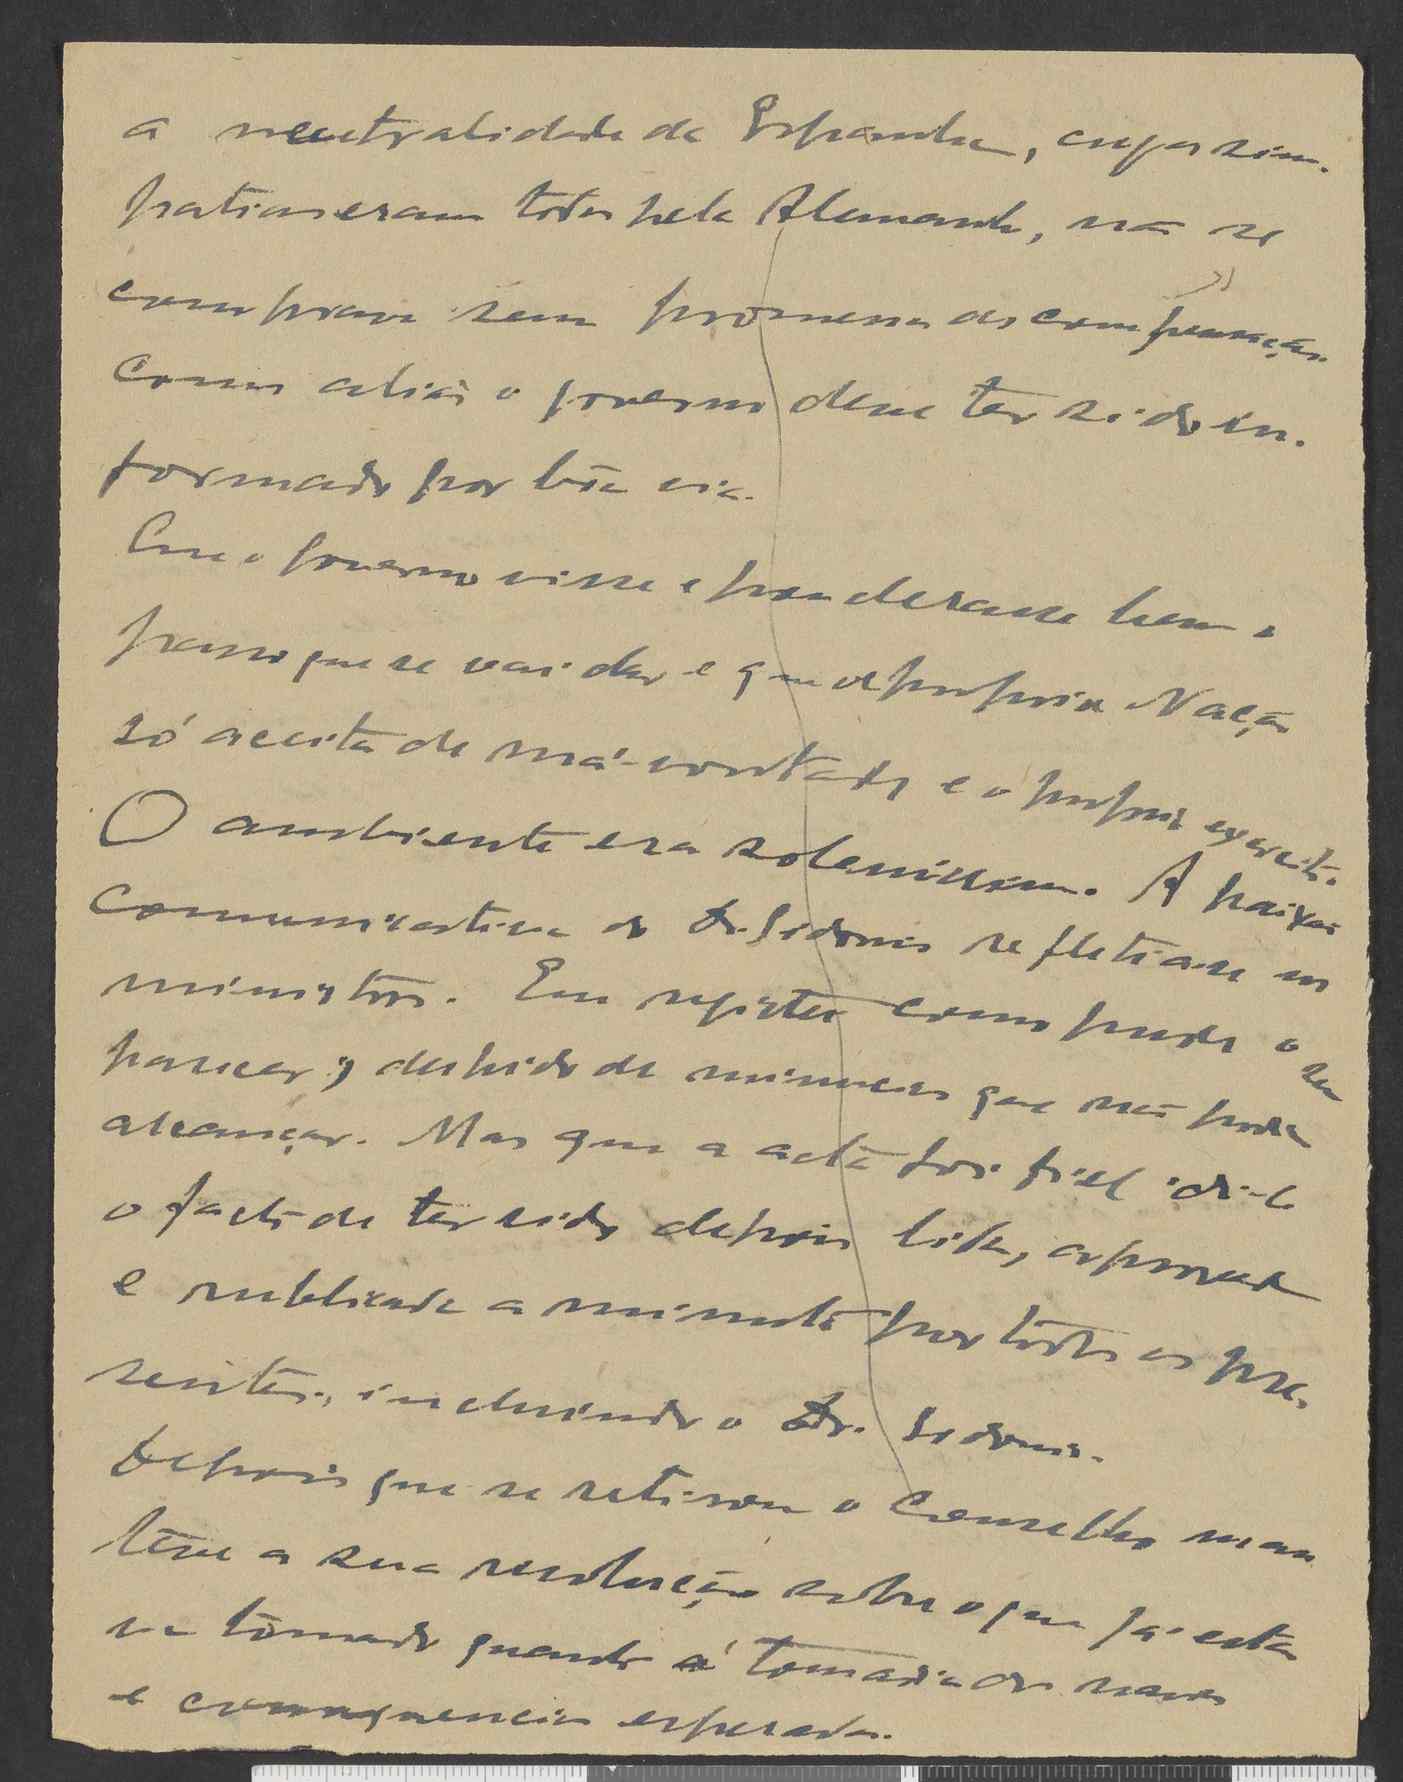 a neutralidade da Espanha, cujas sim-
patias eram todas pela Alemanha, não se
comprava sem promessa de compensação.
Como aliás o governo deve ter sido in-
formado por bôa via.
Que o governo visse e ponderasse bem o
passo que se vai dar e que a propria Nação
só aceita de má-vontade e o proprio exercito.
O ambiente era solenissimo. A paixão
comunicativa do Dr. Sidonio refletia-se nos
ministros. Eu registei como pude o seu
parecer, despido de minucias que não podia
alcançar. Mas que a acta foi fiel di-lo
o facto de ter sido depois lida, aprovada
e rubricada a minuta por todos os pre-
sentes, incluindo o Dr. Sidonio.
Depois que se retirou o Conselho man-
teve a sua resolução sobre o que já esta-
va tomado quanto á tomadia dos navios
e consequencias esperadas.